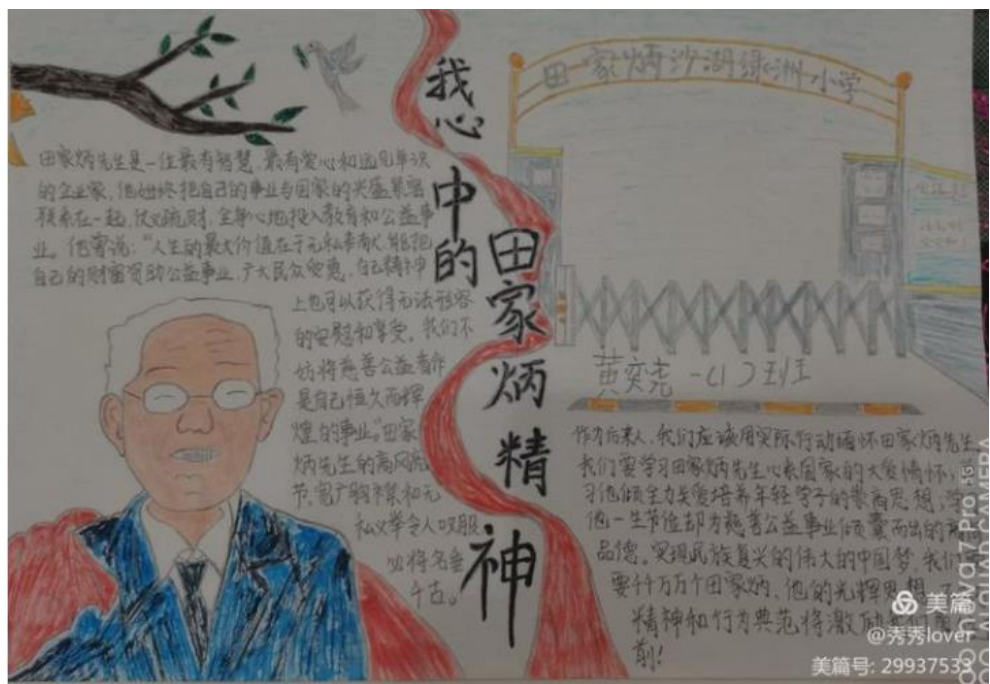 我心中的田家炳精神
田家炳先生是一位最有智慧、最有爱心和远见卓识
的企业家，他始终把自己的事业与国家的兴盛紧密
联系在一起，仗义疏财，全身心地投入教育和公益事
业。他曾说：“人生的最大价值在于无私奉献，能把
自己的财富资助公益事业，广大民众受惠，自己精神
上也可以获得无法形容
的安慰和享受。我们不
妨将慈善公益看作
是自己恒久而辉
煌的事业。”田家
炳先生的高风亮
节，宽广胸襟和无
私义举令人叹服
必将名垂
千古。
田家炳沙湖绿洲小学
黄奕尧 一（1）班
作为后来人，我们应该用实际行动缅怀田家炳先生，
我们要学习田家炳先生心系国家的大爱情怀，
习他倾全力关爱培养年轻学子的崇高思想，学
他一生节俭却为慈善公益事业倾囊而出的高尚
品德。实现民族复兴的伟大的中国梦，我们
要千万万个田家炳，他的光辉思想
精神和行为典范将激励
前！
美篇
@秀秀lover
美篇号: 29937533
nova7 Pro 5G
QUAD CAMERA